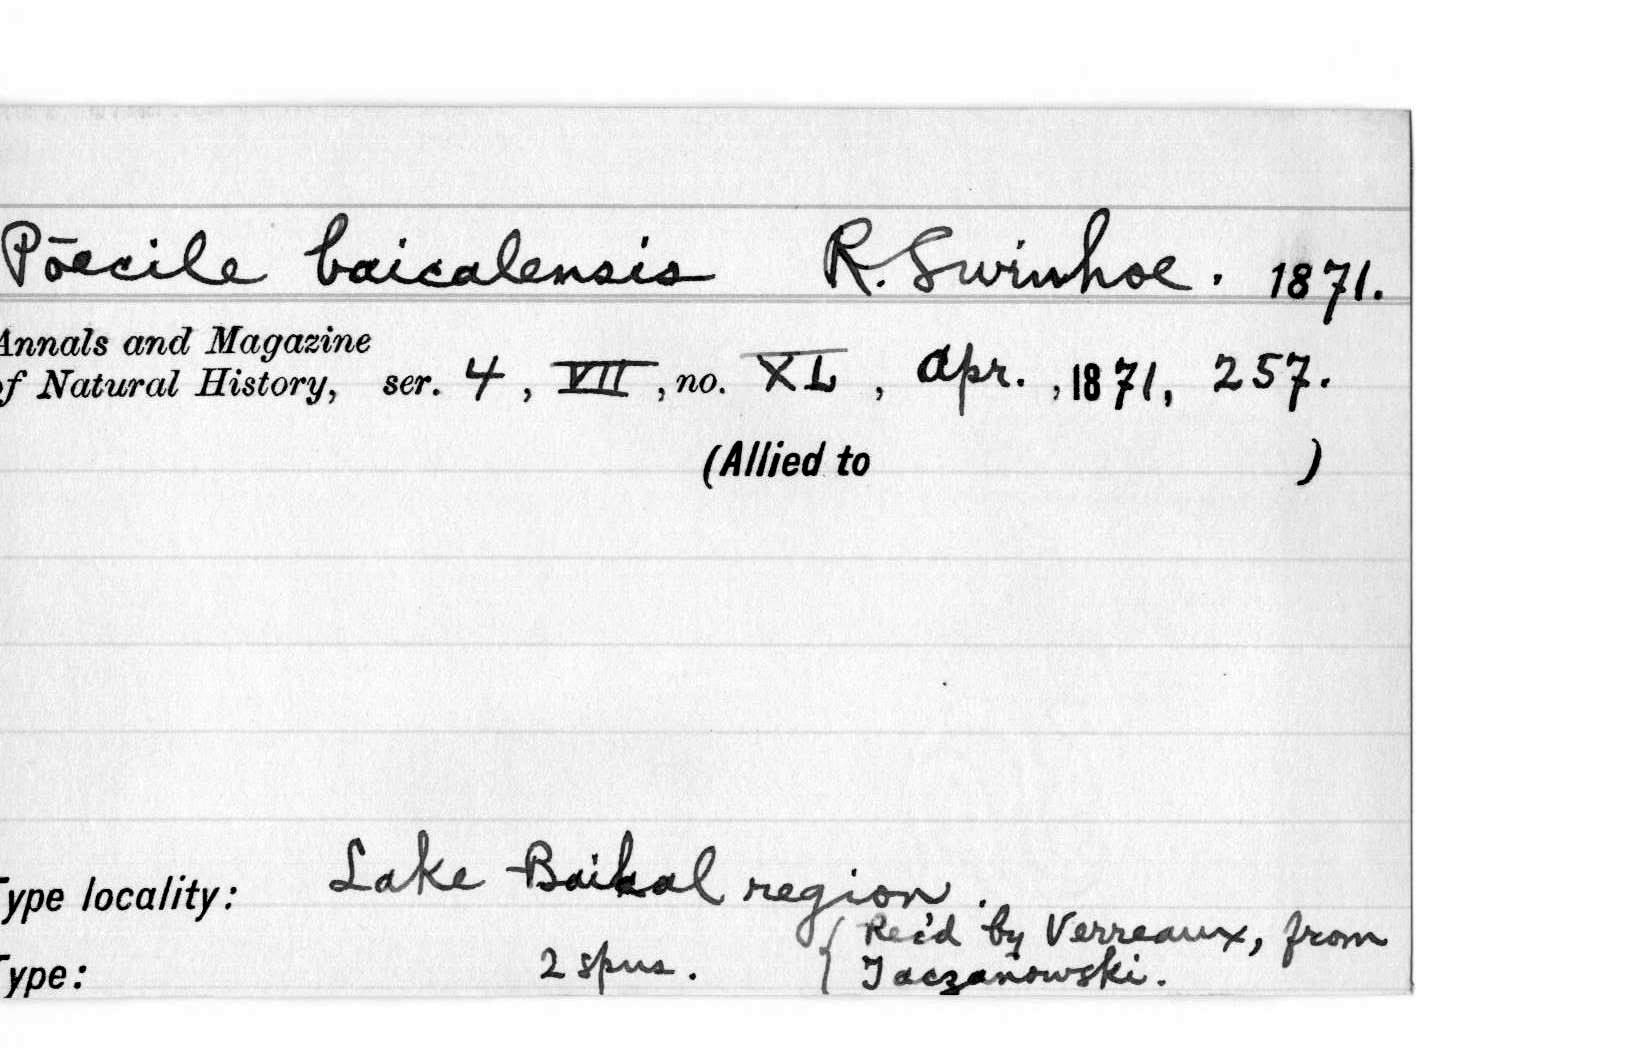 Pōecile baicalensis R. Swinhoe. 1871.
Annals and Magazine
of Natural History, ser. 4, VII, no. XL, Apr., 1871, 257.
(Allied to )
Type locality: Lake Baikal region.
{ Rec'd by Verreaux, from
Type: 2 spns. Taczanowski.